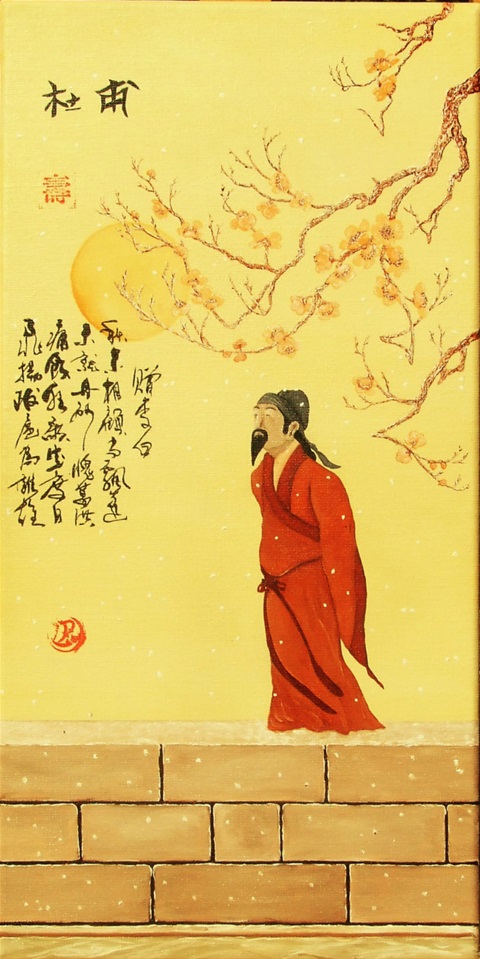 杜甫
壽
贈李白
秋来相顧尚飄蓬
未就丹砂愧葛洪
痛飲狂歌空度日
飛揚跋扈為誰雄